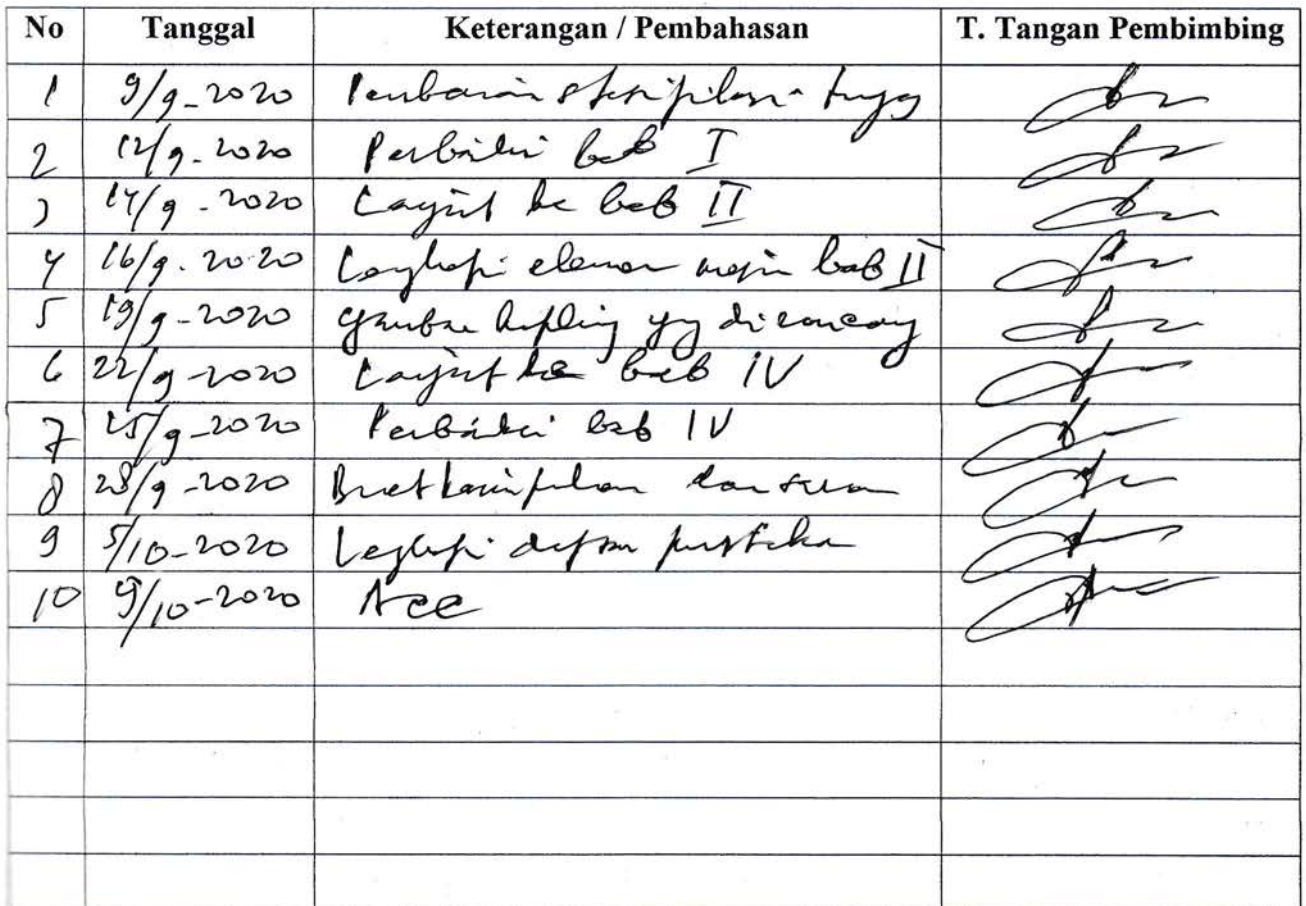 No Tanggal Keterangan / Pembahasan T. Tangan Pembimbing
1 9/9-2020 tugas
2 12/9-2020 Perbaiki bab I
3 14/9-2020 Lanjut ke bab II
4 16/9-2020 Lengkapi elemen mesin bab II
5 19/9-2020 Gambar kopling yg dirancang
6 22/9-2020 Lanjut ke bab IV
7 25/9-2020 Perbaiki bab IV
8 28/9-2020 Buat kesimpulan dan saran
9 5/10-2020 Lengkapi daftar pustaka
10 9/10-2020 Acc